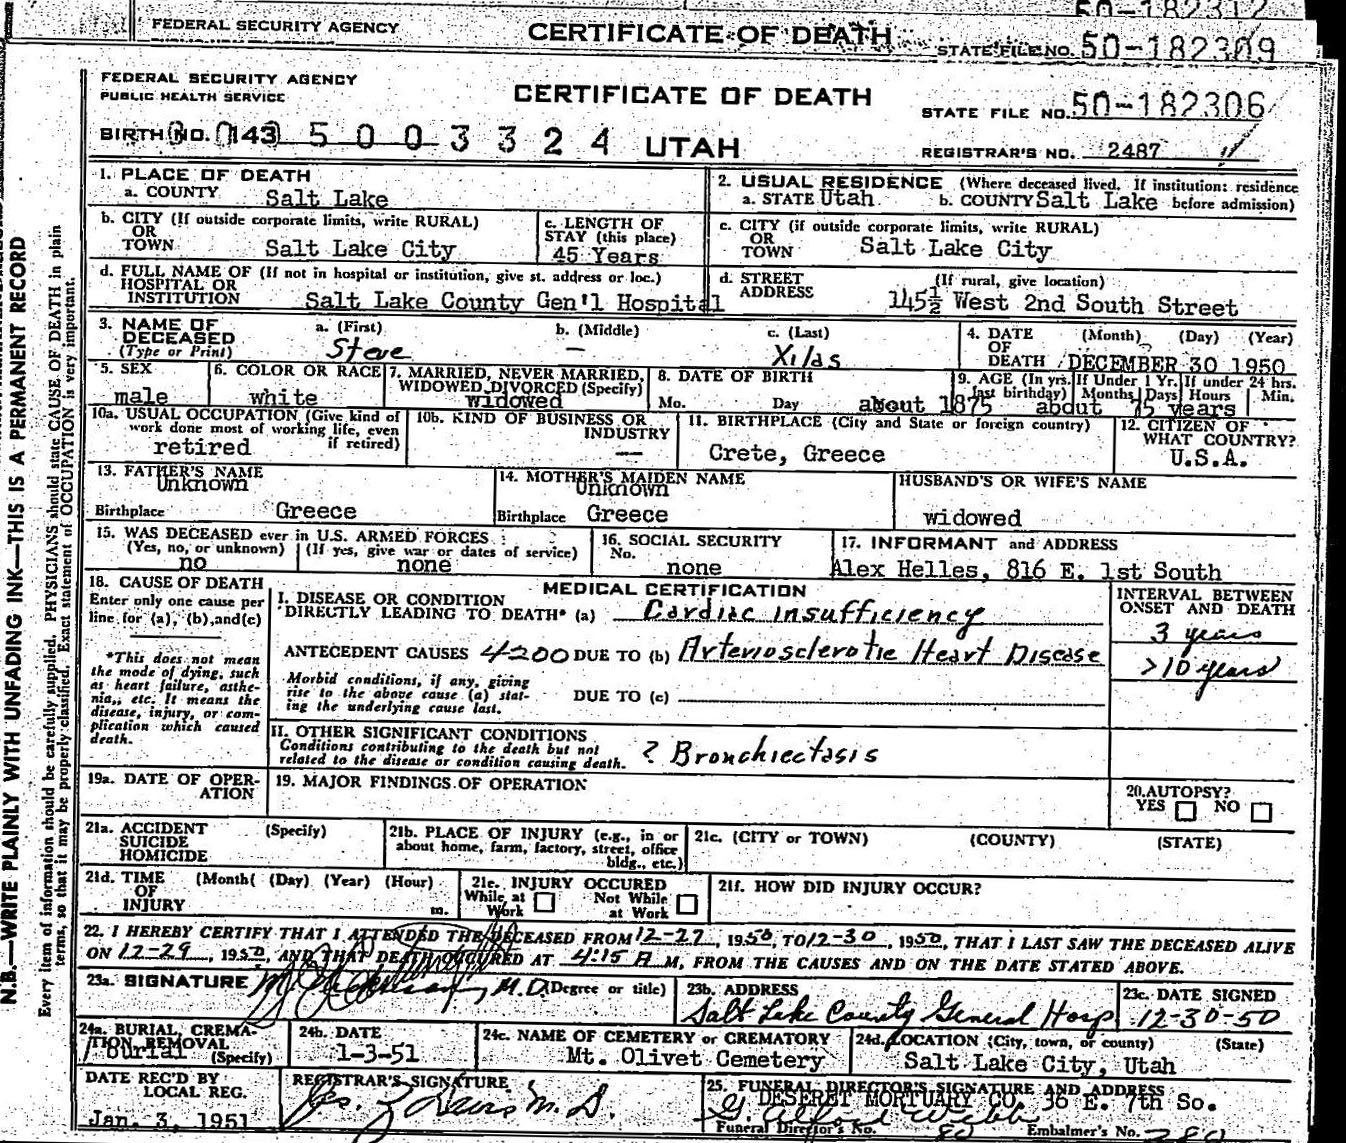 50-182312
FEDERAL SECURITY AGENCY CERTIFICATE OF DEATH STATE FILE NO. 50-182309
FEDERAL SECURITY AGENCY
PUBLIC HEALTH SERVICE
CERTIFICATE OF DEATH
STATE FILE NO. 50-182306
BIRTH NO. 143 5 0 0 3 3 2 4 UTAH
REGISTRAR'S NO. 2487
1. PLACE OF DEATH
a. COUNTY Salt Lake
2. USUAL RESIDENCE (Where deceased lived. If institution: residence
a. STATE Utah b. COUNTY Salt Lake before admission)
b. CITY (If outside corporate limits, write RURAL)
OR
TOWN Salt Lake City
c. LENGTH OF
STAY (this place)
45 Years
c. CITY (if outside corporate limits, write RURAL)
OR
TOWN Salt Lake City
d. FULL NAME OF (If not in hospital or institution, give st. address or loc.)
HOSPITAL OR
INSTITUTION Salt Lake County Gen'l Hospital
d. STREET (If rural, give location)
ADDRESS 145½ West 2nd South Street
3. NAME OF
DECEASED
(Type or Print)
a. (First) b. (Middle) c. (Last)
Steve — Xilas
4. DATE (Month) (Day) (Year)
OF
DEATH DECEMBER 30 1950
5. SEX
male
6. COLOR OR RACE
white
7. MARRIED, NEVER MARRIED,
WIDOWED, DIVORCED (Specify)
widowed
8. DATE OF BIRTH
Mo. Day about 1875
9. AGE (In yrs. last birthday) If Under 1 Yr. If under 24 hrs.
Months Days Hours Min.
about 75 years
10a. USUAL OCCUPATION (Give kind of
work done most of working life, even
if retired)
retired
10b. KIND OF BUSINESS OR
INDUSTRY
—
11. BIRTHPLACE (City and State or foreign country)
Crete, Greece
12. CITIZEN OF
WHAT COUNTRY?
U.S.A.
13. FATHER'S NAME
Unknown
Birthplace Greece
14. MOTHER'S MAIDEN NAME
Unknown
Birthplace Greece
HUSBAND'S OR WIFE'S NAME
widowed
15. WAS DECEASED ever in U.S. ARMED FORCES
(Yes, no, or unknown) (If yes, give war or dates of service)
no none
16. SOCIAL SECURITY
No.
none
17. INFORMANT and ADDRESS
Alex Helles, 816 E. 1st South
18. CAUSE OF DEATH
Enter only one cause per
line for (a), (b), and (c)
*This does not mean
the mode of dying, such
as heart failure, asthe-
nia, etc. It means the
disease, injury, or com-
plication which caused
death.
MEDICAL CERTIFICATION
I. DISEASE OR CONDITION
DIRECTLY LEADING TO DEATH* (a) Cardiac insufficiency
ANTECEDENT CAUSES 4200 DUE TO (b) Arteriosclerotic Heart Disease
Morbid conditions, if any, giving
rise to the above cause (a) stat-
ing the underlying cause last.
DUE TO (c)
INTERVAL BETWEEN
ONSET AND DEATH
3 years
>10 years
II. OTHER SIGNIFICANT CONDITIONS
Conditions contributing to the death but not
related to the disease or condition causing death.
? Bronchiectasis
19a. DATE OF OPER-
ATION
19. MAJOR FINDINGS OF OPERATION
20. AUTOPSY?
YES NO
21a. ACCIDENT (Specify)
SUICIDE
HOMICIDE
21b. PLACE OF INJURY (e.g., in or
about home, farm, factory, street, office
bldg., etc.)
21c. (CITY or TOWN) (COUNTY) (STATE)
21d. TIME (Month( (Day) (Year) (Hour)
OF
INJURY m.
21e. INJURY OCCURED
While at Work Not While at Work
21f. HOW DID INJURY OCCUR?
22. I HEREBY CERTIFY THAT I ATTENDED THE DECEASED FROM 12-27, 1950, TO 12-30, 1950, THAT I LAST SAW THE DECEASED ALIVE
ON 12-29, 1950, AND THAT DEATH OCCURED AT 4:15 A M, FROM THE CAUSES AND ON THE DATE STATED ABOVE.
23a. SIGNATURE M.D. (Degree or title)
23b. ADDRESS
Salt Lake County General Hosp
23c. DATE SIGNED
12-30-50
24a. BURIAL, CREMA-
TION, REMOVAL
(Specify)
Burial
24b. DATE
1-3-51
24c. NAME OF CEMETERY or CREMATORY
Mt. Olivet Cemetery
24d. LOCATION (City, town, or county) (State)
Salt Lake City, Utah
DATE REC'D BY
LOCAL REG.
Jan. 3, 1951
REGISTRAR'S SIGNATURE
M.D.
25. FUNERAL DIRECTOR'S SIGNATURE AND ADDRESS
DESERET MORTUARY CO. 36 E. 7th So.
Funeral Director's No. 80 Embalmer's No.
N.B.—WRITE PLAINLY WITH UNFADING INK—THIS IS A PERMANENT RECORD
Every item of information should be carefully supplied. PHYSICIANS should state CAUSE OF DEATH in plain
terms, so that it may be properly classified. Exact statement of OCCUPATION is very important.